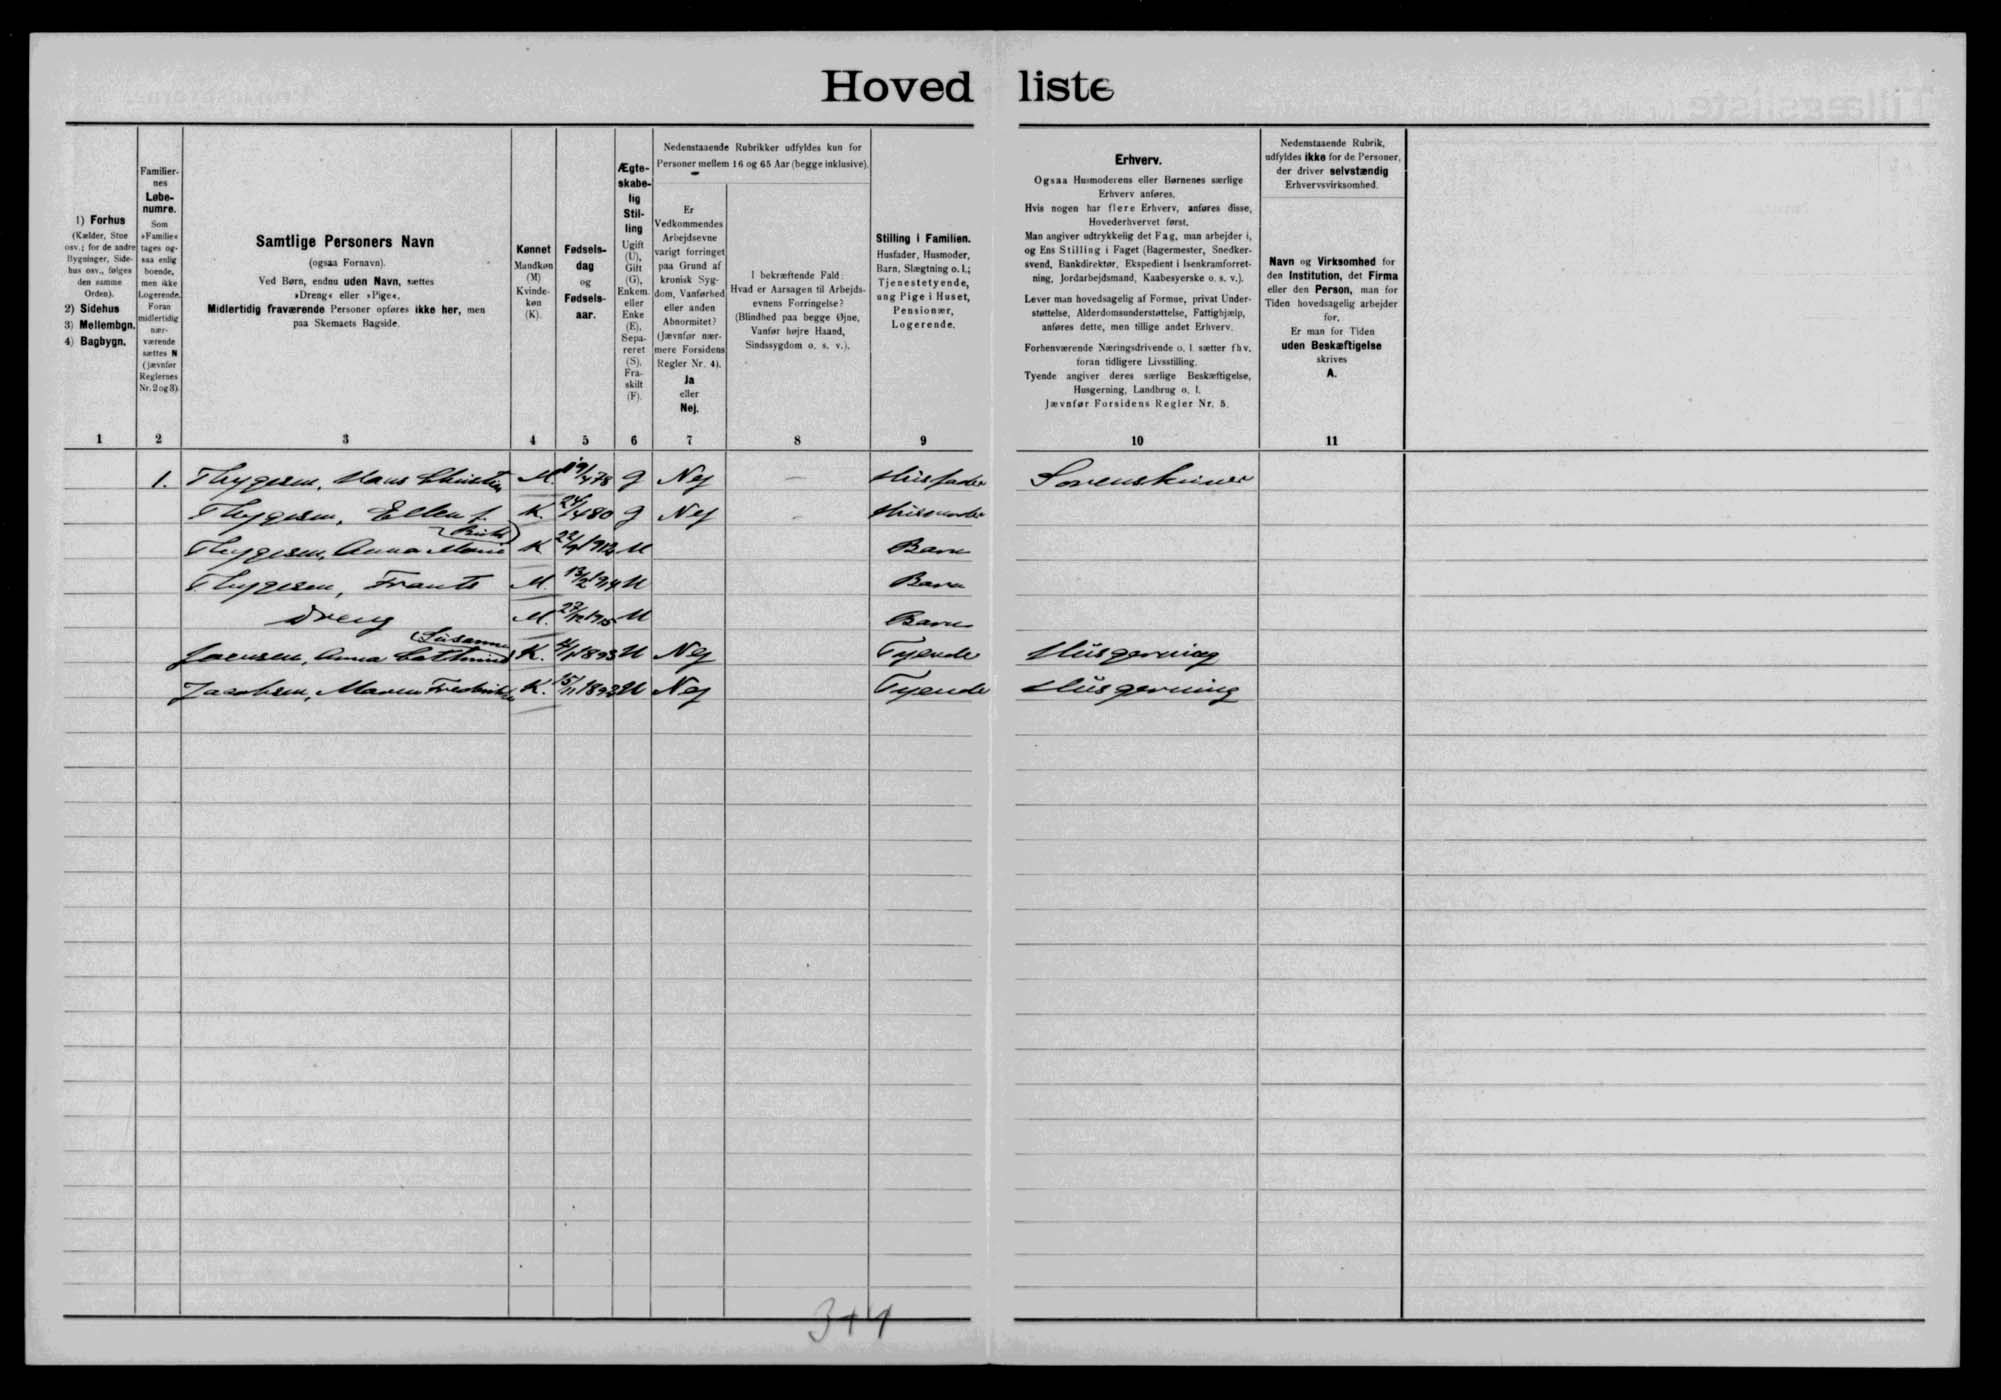 Hovedliste
1) Forhus
(Kælder, Stue
osv.; for de andre
Bygninger, Side-
hus osv., følges
den samme
Orden).
2) Sidehus
3) Mellembgn.
4) Bagbygn.
Familier-
nes
Løbe-
numre.
Som
»Familie«
tages og-
saa enlig
boende,
men ikke
Logerende.
Foran
midlertidig
nær-
værende
sættes N
(jævnfør
Reglernes
Nr. 2 og 3).
Samtlige Personers Navn
(ogsaa Fornavn).
Ved Børn, endnu uden Navn, sættes
»Dreng« eller »Pige«.
Midlertidig fraværende Personer opføres ikke her, men
paa Skemaets Bagside.
Kønnet
Mandkøn
(M)
Kvinde-
køn
(K).
Fødsels-
dag
og
Fødsels-
aar.
Ægte-
skabe-
lig
Stil-
ling
Ugift
(U),
Gift
(G),
Enkem.
eller
Enke
(E),
Sepa-
reret
(S),
Fra-
skilt
(F).
Nedenstaaende Rubrikker udfyldes kun for
Personer mellem 16 og 65 Aar (begge inklusive).
Er
Vedkommendes
Arbejdsevne
varigt forringet
paa Grund af
kronisk Syg-
dom, Vanførhed
eller anden
Abnormitet?
(Jævnfør nær-
mere Forsidens
Regler Nr. 4).
Ja
eller
Nej.
I bekræftende Fald:
Hvad er Aarsagen til Arbejds-
evnens Forringelse?
(Blindhed paa begge Øjne,
Vanfør højre Haand,
Sindssygdom o. s. v.).
Stilling i Familien.
Husfader, Husmoder,
Barn, Slægtning o. l.;
Tjenestetyende,
ung Pige i Huset,
Pensionær,
Logerende.
Erhverv.
Ogsaa Husmoderens eller Børnenes særlige
Erhverv anføres.
Hvis nogen har flere Erhverv, anføres disse,
Hovederhvervet først.
Man angiver udtrykkelig det Fag, man arbejder i,
og Ens Stilling i Faget (Bagermester, Snedker-
svend, Bankdirektør, Ekspedient i Isenkramforret-
ning, Jordarbejdsmand, Kaabesyerske o. s. v.).
Lever man hovedsagelig af Formue, privat Under-
støttelse, Alderdomsunderstøttelse, Fattighjælp,
anføres dette, men tillige andet Erhverv.
Forhenværende Næringsdrivende o. l. sætter fhv.
foran tidligere Livsstilling.
Tyende angiver deres særlige Beskæftigelse,
Husgerning, Landbrug o. l.
Jævnfør Forsidens Regler Nr. 5.
Nedenstaaende Rubrik,
udfyldes ikke for de Personer,
der driver selvstændig
Erhvervsvirksomhed.
Navn og Virksomhed for
den Institution, det Firma
eller den Person, man for
Tiden hovedsagelig arbejder
for.
Er man for Tiden
uden Beskæftigelse
skrives
A.
1 2 3 4 5 6 7 8 9 10 11
1. Thygesen, Hans Christian M. 19/4 78 G Nej — Husfader
Thygesen, Ellen f. K. 24/4 80 G Nej - Husmoder
Thygesen, Anna Marie K 22/9 1912 U Barn
Thygesen, Frants M. 13/2 1914 U Barn
Dreng M. 29/12 1915 U Barn
(Susanne)
Jaensen, Anna K. 4/1 1893 U Nej Tyende Husgerning
Jacobsen, Maren K. 15/11 1892 U Nej Tyende Husgerning
3+4